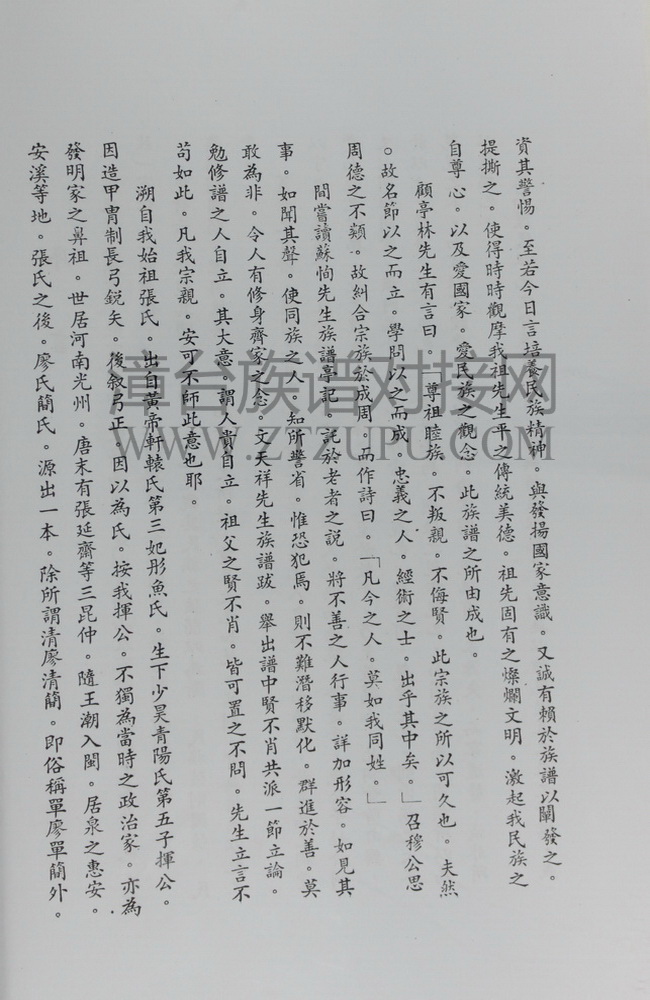 資其警惕。至若今日言培養民族精神。與發揚國家意識。又誠有賴於族譜以闡發之。
提撕之。使得時時觀摩我祖先生平之傳統美德。祖先固有之燦爛文明。激起我民族之
自尊心。以及愛國家。愛民族之觀念。此族譜之所由成也。
顧亭林先生有言曰。「尊祖睦族。不叛親。不侮賢。此宗族之所以可久也。夫然
。故名節以之而立。學問以之而成。忠義之人。經術之士。出乎其中矣。」召穆公思
周德之不類。故糾合宗族於成周。而作詩曰。「凡今之人。莫如我同姓。」
間嘗讀蘇恂先生族譜亭記。託於老者之說。將不善之人行事。詳加形容。如見其
事。如聞其聲。使同族之人。知所警省。惟恐犯焉。則不難潛移默化。群進於善。莫
敢為非。令人有修身齊家之念。文天祥先生族譜跋。舉出譜中賢不肖共派一節立論。
勉修譜之人自立。其大意。謂人貴自立。祖父之賢不肖。皆可置之不問。先生立言不
苟如此。凡我宗親。安可不師此意也耶。
溯自我始祖張氏。出自黃帝軒轅氏第三妃彤魚氏。生下少昊青陽氏第五子揮公。
因造甲冑制長弓銳矢。後敘弓正。因以為氏。按我揮公。不獨為當時之政治家。亦為
發明家之鼻祖。世居河南光州。唐末有張延齋等三昆仲。隨王潮入閩。居泉之惠安。
安溪等地。張氏之後。廖氏簡氏。源出一本。除所謂清廖清簡。即俗稱單廖單簡外。
漳台族谱对接网
WWW.ZTZUPU.COM